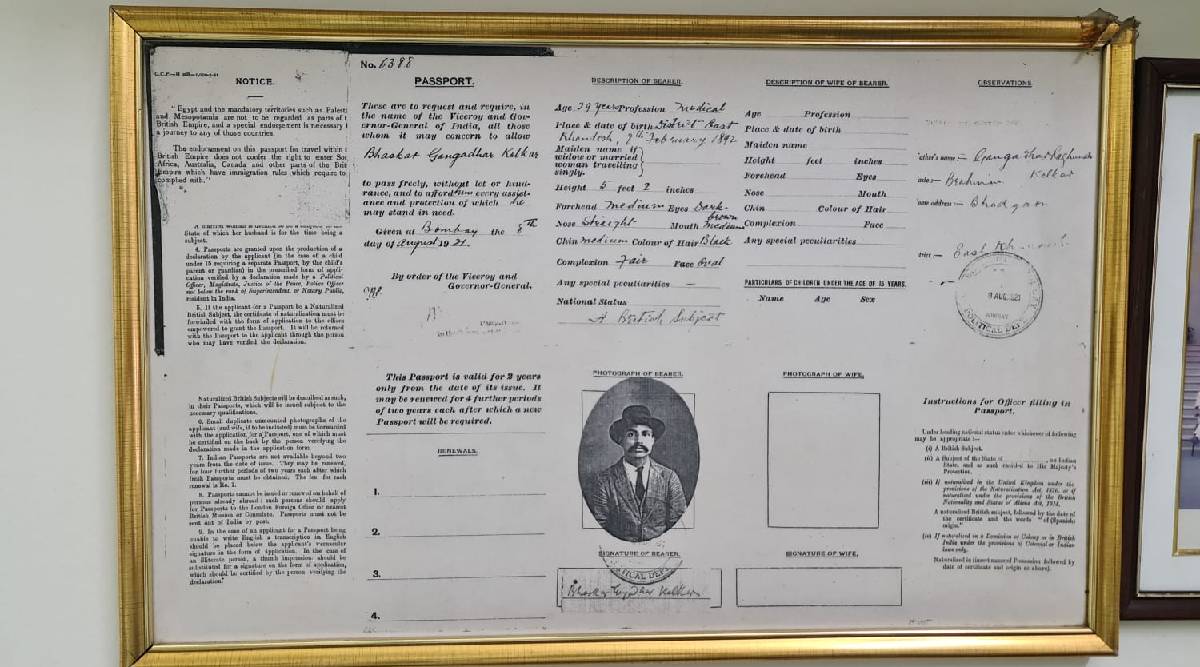 NOTICE.
Egypt and the mandatory territories such as Palest
and Mesopotamia are not to be regarded as parts of t
British Empire, and a special endorsement is necessary f
a journey to any of those countries.
The endorsement on this passport for travel within
British Empire does not confer the right to enter Sou
Africa, Australia, Canada and other parts of the Brit
Empire which have immigration rules which require to
complied with."
State of which her husband is for the time being a
subject.
4. Passports are granted upon the production of a
declaration by the applicant (in the case of a child
under 15 requiring a separate Passport, by the child's
parent or guardian) in the prescribed form of appli-
cation verified by a declaration made by a Political
Officer, Magistrate, Justice of the Peace, Police Officer
not below the rank of Superintendent, or Notary Public,
resident in India.
5. If the applicant for a Passport be a Naturalized
British Subject, the certificate of naturalization must be
forwarded with the form of application to the officer
empowered to grant the Passport. It will be returned
with the Passport to the applicant through the person
who may have verified the declaration.
Naturalized British Subjects will be described as such,
in their Passports, which will be issued subject to the
necessary qualifications.
6. Small duplicate unmounted photographs of the
applicant (and wife, if to be included) must be forwarded
with the application for a Passport, one of which must
be certified on the back by the person verifying the
declaration made in the application form.
7. Indian Passports are not available beyond two
years from the date of issue. They may be renewed,
for four further periods of two years each after which
fresh Passports must be obtained. The fee for each
renewal is Re. 1.
8. Passports cannot be issued or renewed on behalf of
persons already abroad; such persons should apply
for Passports to the London Foreign Office or nearest
British Mission or Consulate. Passports must not be
sent out of India by post.
9. In the case of an applicant for a Passport being
unable to write English a transcription in English
should be placed below the applicant's vernacular
signature in the form of application. In the case of
an illiterate person, a thumb impression should be
substituted for a signature on the form of application,
which should be certified by the person verifying the
declaration."
No. 6388
PASSPORT.
These are to request and require, in
the name of the Viceroy and Gov-
ernor-General of India, all those
whom it may concern to allow
Bhaskar Gangadhar Kelkar
to pass freely, without let or hind-
rance, and to afford him every assist-
ance and protection of which he
may stand in need.
Given at Bombay the 8th
day of August 1921.
By order of the Viceroy and
Governor-General.
This Passport is valid for 2 years
only from the date of its issue. It
may be renewed for 4 further periods
of two years each after which a new
Passport will be required.
RENEWALS.
1.
2.
3.
4.
DESCRIPTION OF BEARER.
Age 29 years Profession Medical
Place & date of birth District East
Khandesh, 9th February 1892
Maiden name if
widow or married
woman travelling
singly.
Height 5 feet 2 inches
Forehead Medium Eyes Dark-brown
Nose Straight Mouth Medium
Chin Medium Colour of Hair Black
Complexion Fair Face Oval
Any special peculiarities —
National Status
A British Subject
PHOTOGRAPH OF BEARER.
SIGNATURE OF BEARER.
DESCRIPTION OF WIFE OF BEARER.
Age Profession
Place & date of birth
Maiden name
Height feet inches
Forehead Eyes
Nose Mouth
Chin Colour of Hair
Complexion Face
Any special peculiarities
PARTICULARS OF CHILDREN UNDER THE AGE OF 15 YEARS.
Name Age Sex
PHOTOGRAPH OF WIFE.
SIGNATURE OF WIFE.
OBSERVATIONS.
ather's name - Gangadhar
Kelkar
Brahmin
address - Bhadgaon
trict - East
AUG. 1921
BOMBAY
POLITICAL DE
Instructions for Officer filling in
Passport.
Under heading national status whichever of following
may be appropriate :—
(i) A British Subject.
(ii) A Subject of the State of , an Indian
State, and as such entitled to His Majesty's
Protection.
(iii) If naturalized in the United Kingdom under the
provisions of the Naturalization Act, 1870, or if
naturalized under the provisions of the British
Nationality and Status of Aliens Act, 1914,
A naturalized British subject, followed by the date of
the certificate and the words "of (Spanish)
origin."
(iv) If naturalized in a Dominion or Colony or in British
India under the provisions of Colonial or Indian
laws only,
Naturalized in (name) named Possession followed by
date of certificate and origin as above).